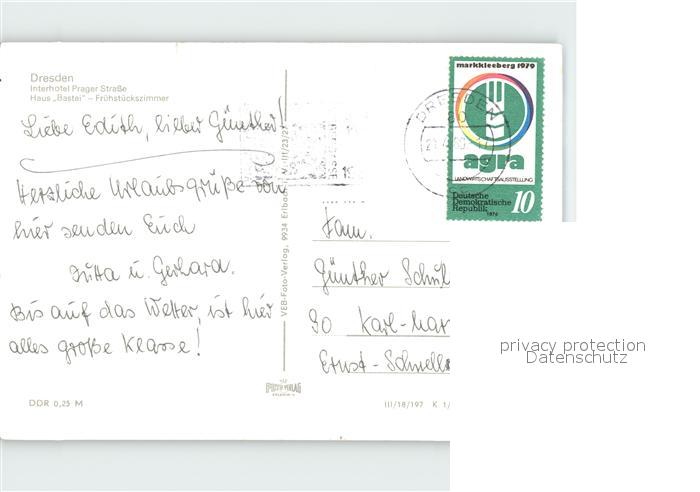 Dresden
Interhotel Prager Straße
Haus „Bastei" – Frühstückszimmer
Liebe Edith, lieber Günther!
Herzliche Urlaubsgrüße von
hier senden Euch
Jutta u. Gerhard.
Bis auf das Wetter, ist hier
alles große Klasse!
DDR 0,25 M
VEB-Foto-Verlag, 9934 Erlbach
III/23/27
markkleeberg 1979
agra
LANDWIRTSCHAFTSAUSSTELLUNG
Deutsche
Demokratische
Republik
10
DRESDEN
80
Fam.
Günther Schul
90 Karl-Mar
Ernst-Schnell
III/18/197 K 1/
privacy protection
Datenschutz